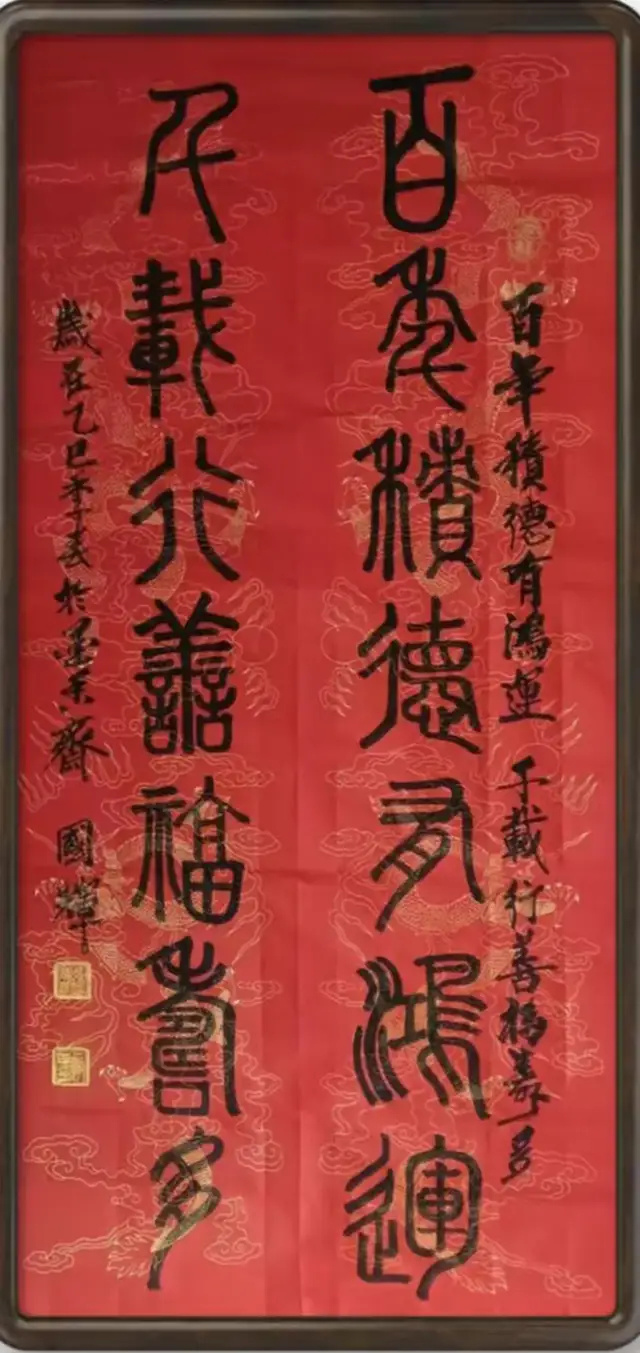 百年積德有鴻運 千載行善福壽多
百年積德有鴻運
千載行善福壽多
歲在乙巳年於墨香齋 國輝